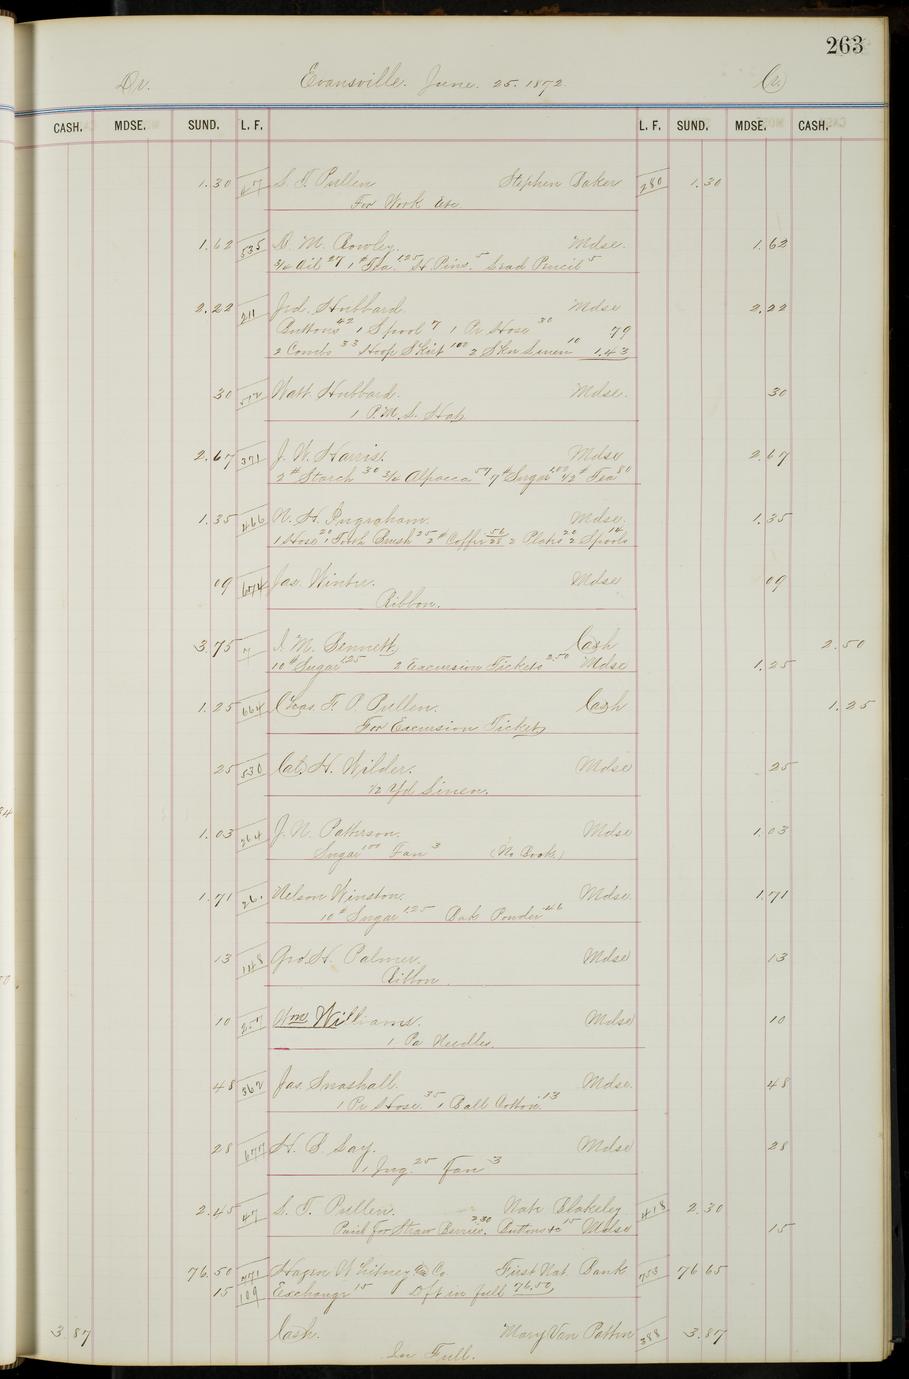 263
Dr. Evansville. June. 25. 1872. Cr.
CASH. MDSE. SUND. L. F. L. F. SUND. MDSE. CASH.
1.30 47 S. T. Pullen Stephen Baker 280 1.30
For Work
1.62 535 D. M. Rowley. Mdse. 1.62
3/4 Oil 27 1 # Tea 1.25 H Pins. 5 Lead Pencil 5
2.22 211 Hubbard Mdse 2.22
Buttons 42 1 Spool 7 1 Pr Hose 30 79
2 Combs 33 Hoop Skirt 100 2 Skn Linen 10 1.43
30 572 Watt. Hubbard. Mdse. 30
1 P.M. S. Hat
2.67 371 J. W. Harris. Mdse 2.67
2 # Starch 30 3/4 Alpacca 57 7 # Sugar 1.00 1/2 # Tea 80
1.35 466 N. H. Ingraham. Mdse. 1.35
1 Hose 20 1 Tooth Brush 25 2 # Coffee 56 28 2 Plates 20 2 Spools 14
09 Jas. Winter. Mdse 09
Ribbon.
3.75 7 I. M. Bennett Cash 2.50
10 # Sugar 1.25 2 Excursion Tickets 2.50 Mdse 1.25
1.25 664 Chas. F. P. Pullen. Cash 1.25
For Excursion Ticket
25 530 Cal. H. Wilder. Mdse 25
1/2 Yd Linen.
1.03 264 J. N. Patterson. Mdse 1.03
Sugar 100 Fan 3 (No Book.)
1.71 26 Nelson Winston. Mdse. 1.71
10 # Sugar 1.25 Bak Powder 46
13 148 Geo. H. Palmer. Mdse 13
Ribbon.
10 257 Wm. Williams. Mdse 10
1 Pa Needles.
48 362 Jas. Snashall. Mdse. 48
1 Pr Hose 35 1 Ball Cotton. 13
28 677 H. B. Say. Mdse 28
1 Jug. 25 Fan 3
2.45 47 S. T. Pullen. Nate Blakeley 418 2.30
Paid for Straw Berries. 2.30 Buttons &c 15 Mdse 15
76.50 Hagen Whitney & Co First Nat. Bank 753 76 65
15 109 Exchange 15 Dft in full 76.50
3.87 Cash. Mary Van Patten 388 3.87
In Full.